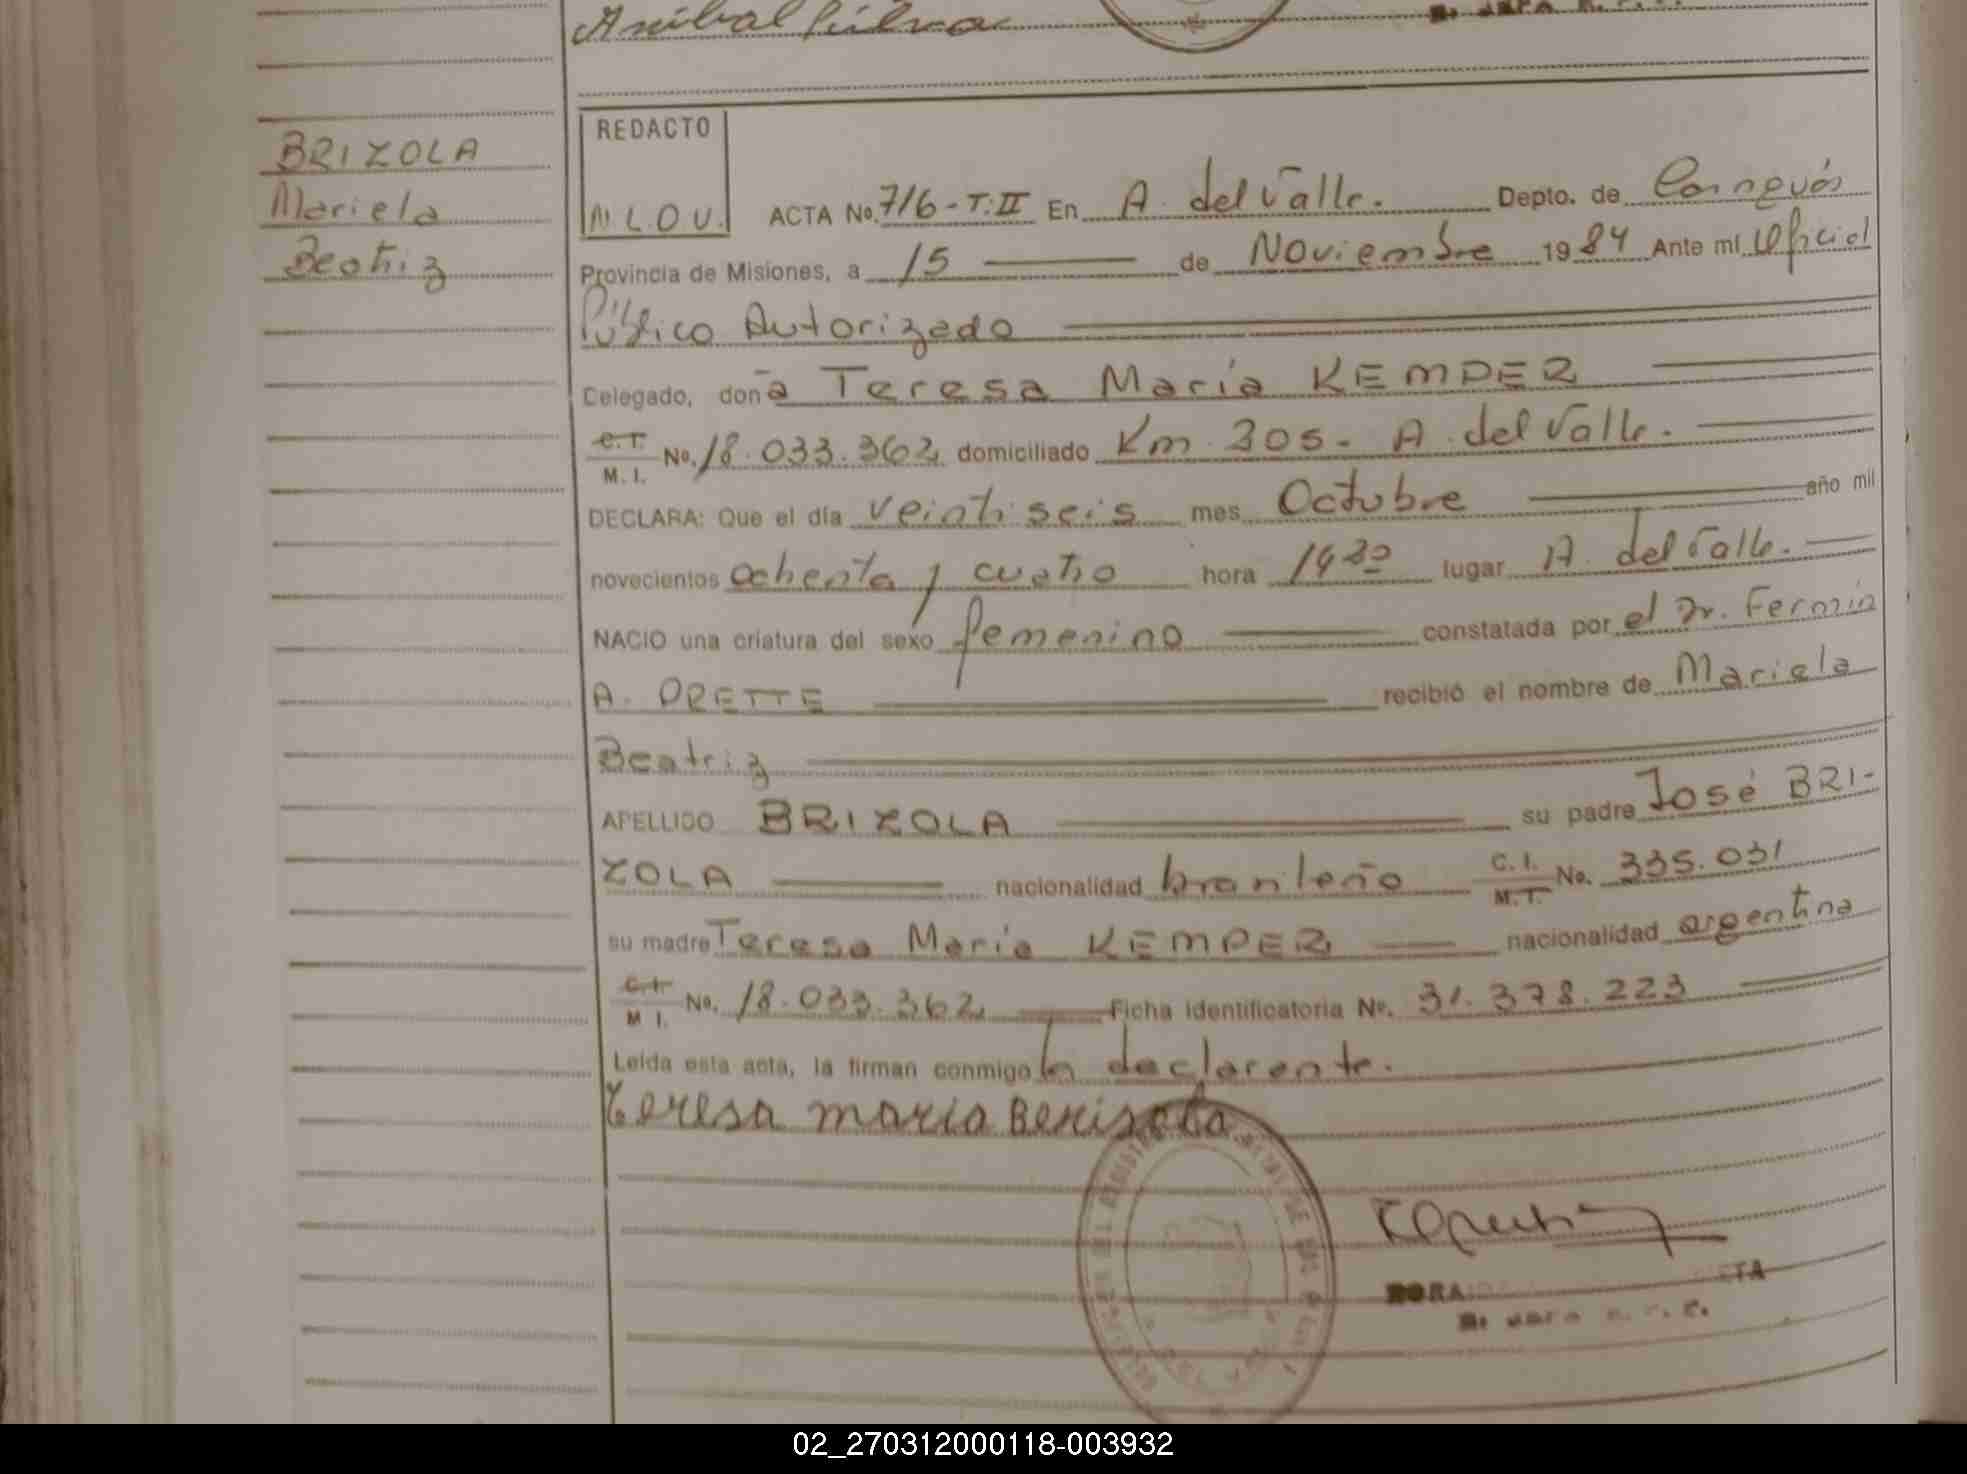 Anibal Silva
BRIZOLA
Mariela
Beatriz
REDACTO
N.L.O.V.
ACTA No. 716-T:II En A. del Valle. Depto. de Cainguás
Provincia de Misiones, a 15 de Noviembre 1984 Ante mi Oficial
Público Autorizado
Delegado, doña Teresa María KEMPER
C.I. M.I. No. 18.033.362 domiciliado Km. 305. A. del Valle.
DECLARA: Que el día veintiseis mes Octubre año mil
novecientos ochenta y cuatro hora 14 30 lugar A. del Valle.
NACIO una criatura del sexo femenino constatada por el Dr. Fermín
A. ORETTE recibió el nombre de Mariela
Beatriz
APELLIDO BRIZOLA su padre José BRI-
ZOLA nacionalidad brasileño C.I. M.I. No. 335.031
su madre Teresa María KEMPER nacionalidad argentina
C.I. M I. No. 18.033.362 Ficha Identificatoria No. 31.378.223
Leída esta acta, la firman conmigo la declarente.
Teresa maria Berisola
02_270312000118-003932